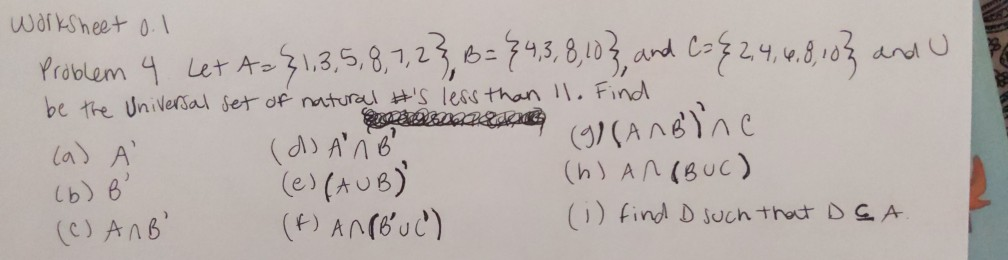 Worksheet 0.1
Problem 4 Let A={1,3,5,8,7,2}, B={4,3,8,10}, and C={2,4,6,8,10} and U
be the Universal set of natural #'s less than 11. Find
(a) A' (d) A'∩B' (g) (A∩B')'∩C
(b) B' (e) (A∪B)' (h) A∩(B∪C)
(c) A∩B' (f) A∩(B'∪C') (i) find D such that D⊆A.